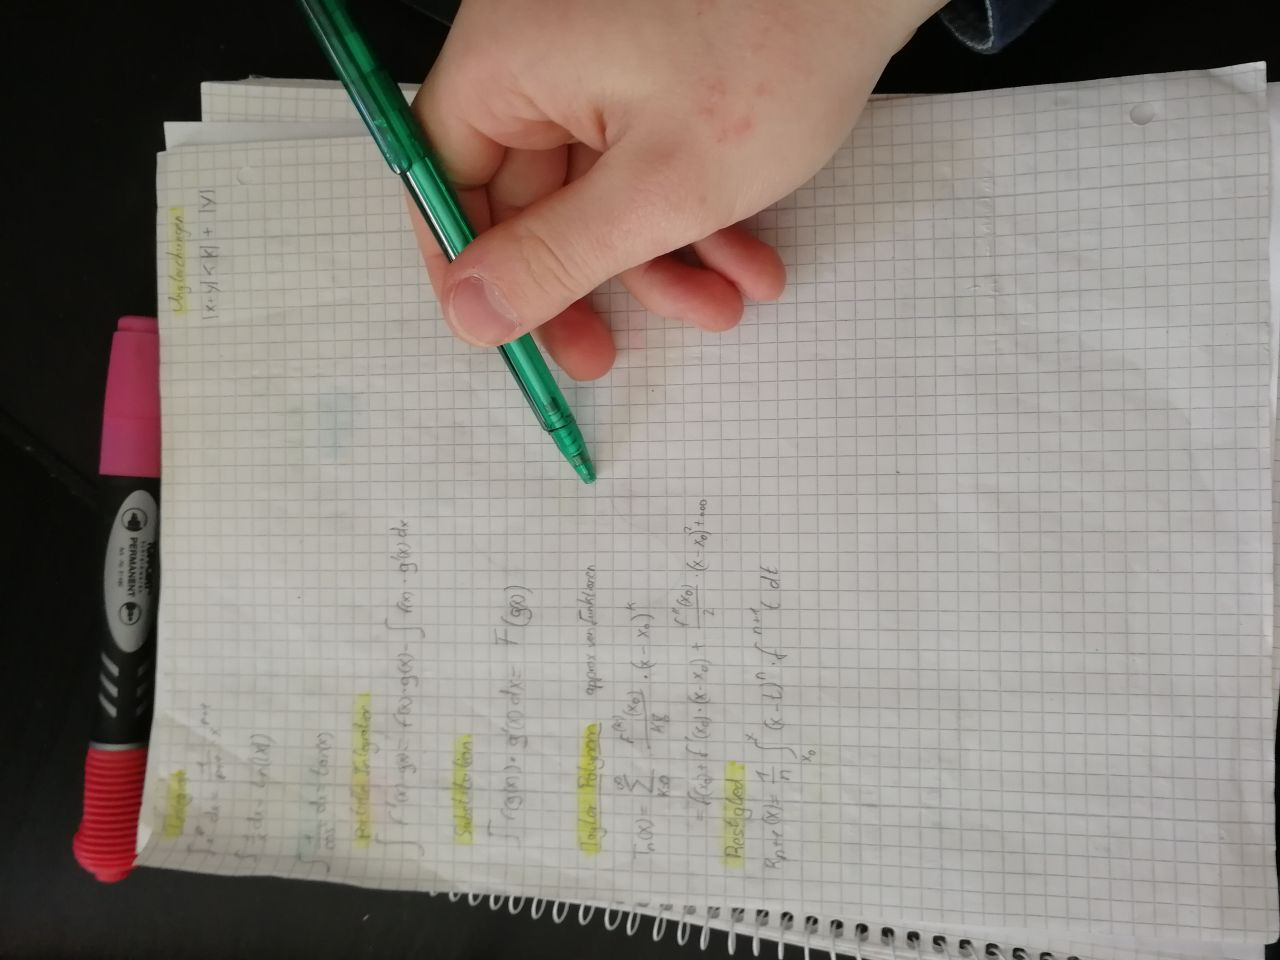 Integration
∫ x^p dx = 1/(p+1) · x^(p+1)
∫ 1/x dx = ln(|x|)
∫ 1/cos² dx = tan(x)
Partielle Integration
∫ f'(x)·g(x) = f(x)·g(x) - ∫ f(x)·g'(x) dx
Substitution
∫ f(g(x))·g'(x) dx = F(g(x))
Taylor Polynom approx von funktionen
Tn(x) = ∞ Σ k=0 f^(k)(x₀)/k! · (x-x₀)^k
= f(x₀) + f'(x₀)·(x-x₀) + f''(x₀)/2 · (x-x₀)² + ...
Restglied
Rn+1(x) = 1/n ∫ x x₀ (x-t)^n · f^(n+1) ( dt
Ungleichungen
|x+y| < |x| + |y|
PERMANENT